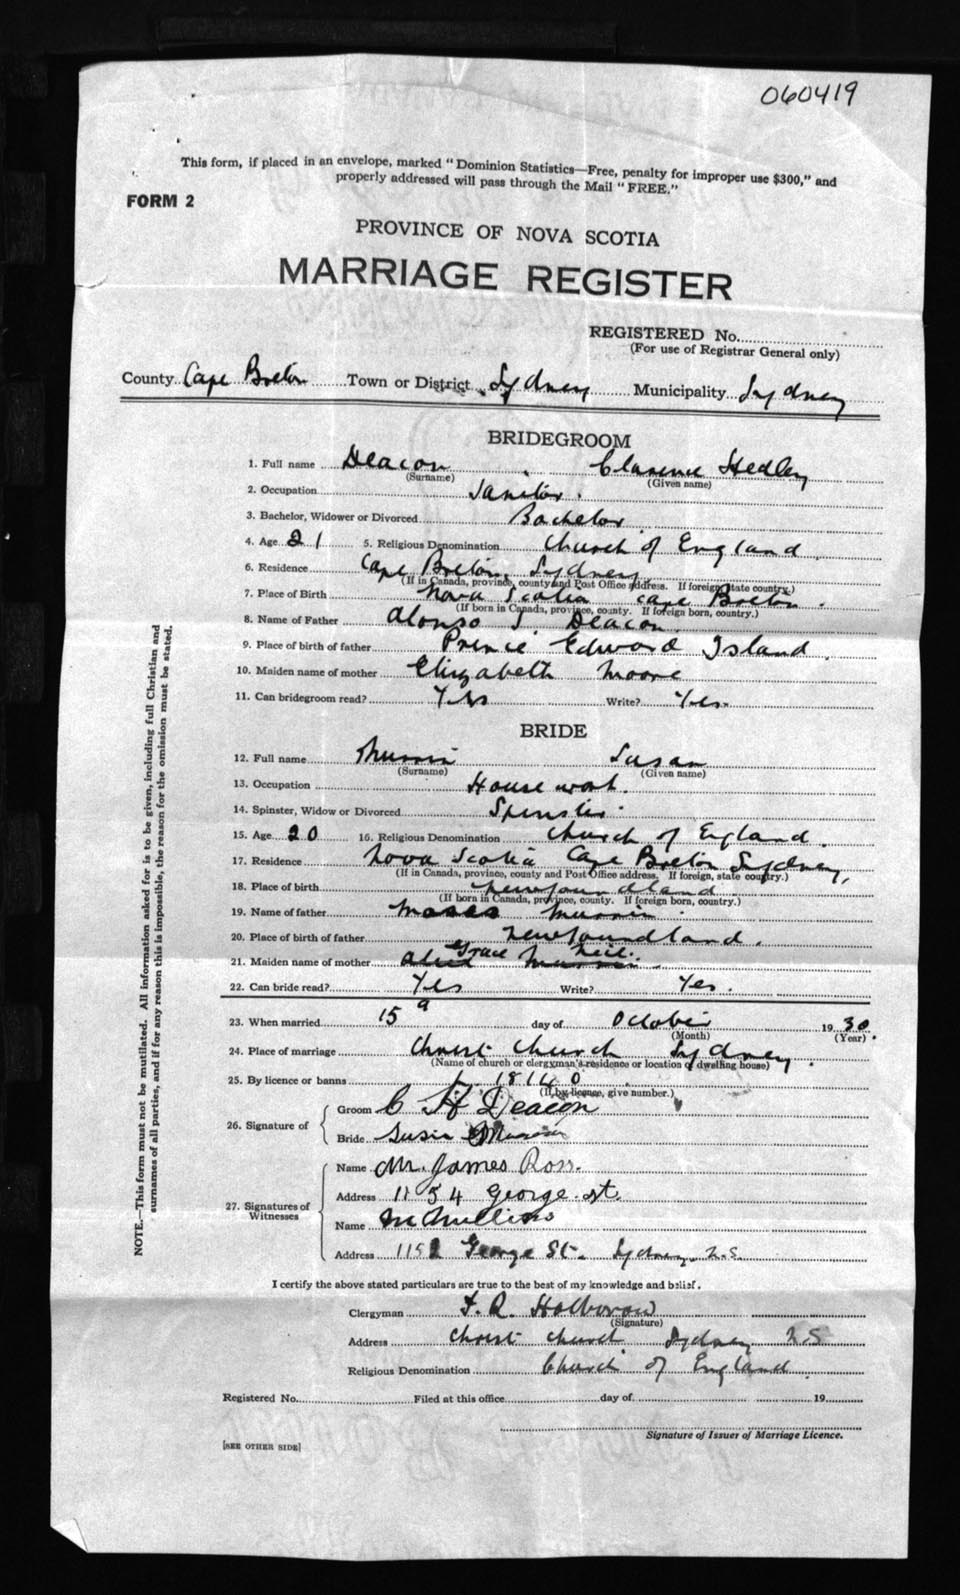 060419
This form, if placed in an envelope, marked "Dominion Statistics—Free, penalty for improper use $300," and
properly addressed will pass through the Mail "FREE."
FORM 2
PROVINCE OF NOVA SCOTIA
MARRIAGE REGISTER
REGISTERED No.
(For use of Registrar General only)
County Cape Breton Town or District Sydney Municipality Sydney
BRIDEGROOM
1. Full name Deacon Clarence Hedley
(Surname) (Given name)
2. Occupation Janitor.
3. Bachelor, Widower or Divorced Bachelor
4. Age 21 5. Religious Denomination Church of England
6. Residence Cape Breton, Sydney
(If in Canada, province, county and Post Office address. If foreign, state country.)
7. Place of Birth Nova Scotia Cape Breton.
(If born in Canada, province, county. If foreign born, country.)
8. Name of Father Alonso J. Deacon
9. Place of birth of father Prince Edward Island.
10. Maiden name of mother Elizabeth Moore
11. Can bridegroom read? Yes Write? Yes.
BRIDE
12. Full name Murrin Susan
(Surname) (Given name)
13. Occupation House work.
14. Spinster, Widow or Divorced Spinster.
15. Age 20 16. Religious Denomination Church of England.
17. Residence Nova Scotia Cape Breton Sydney,
(If in Canada, province, county and Post Office address. If foreign, state country.)
18. Place of birth Newfoundland
(If born in Canada, province, county. If foreign born, country.)
19. Name of father Moses Murrin.
20. Place of birth of father Newfoundland.
Grace Neil.
21. Maiden name of mother Murrin.
22. Can bride read? Yes Write? Yes.
23. When married 15 day of October 1930.
(Month) (Year)
24. Place of marriage Christ Church Sydney.
(Name of church or clergyman's residence or location of dwelling house)
25. By licence or banns L. 18140.
(If by licence, give number.)
26. Signature of
Groom C H Deacon
Bride Susie Murrin
27. Signatures of
Witnesses
Name Mr. James Ross.
Address 1154 George St.
Name
Address 1152 George St. Sydney, N.S.
I certify the above stated particulars are true to the best of my knowledge and belief.
Clergyman Holborow
(Signature)
Address Christ Church Sydney N.S
Religious Denomination Church of England.
Registered No. Filed at this office day of 19
Signature of Issuer of Marriage Licence.
[SEE OTHER SIDE]
NOTE.—This form must not be mutilated. All information asked for is to be given, including full Christian and
surnames of all parties, and if for any reason this is impossible, the reason for the omission must be stated.